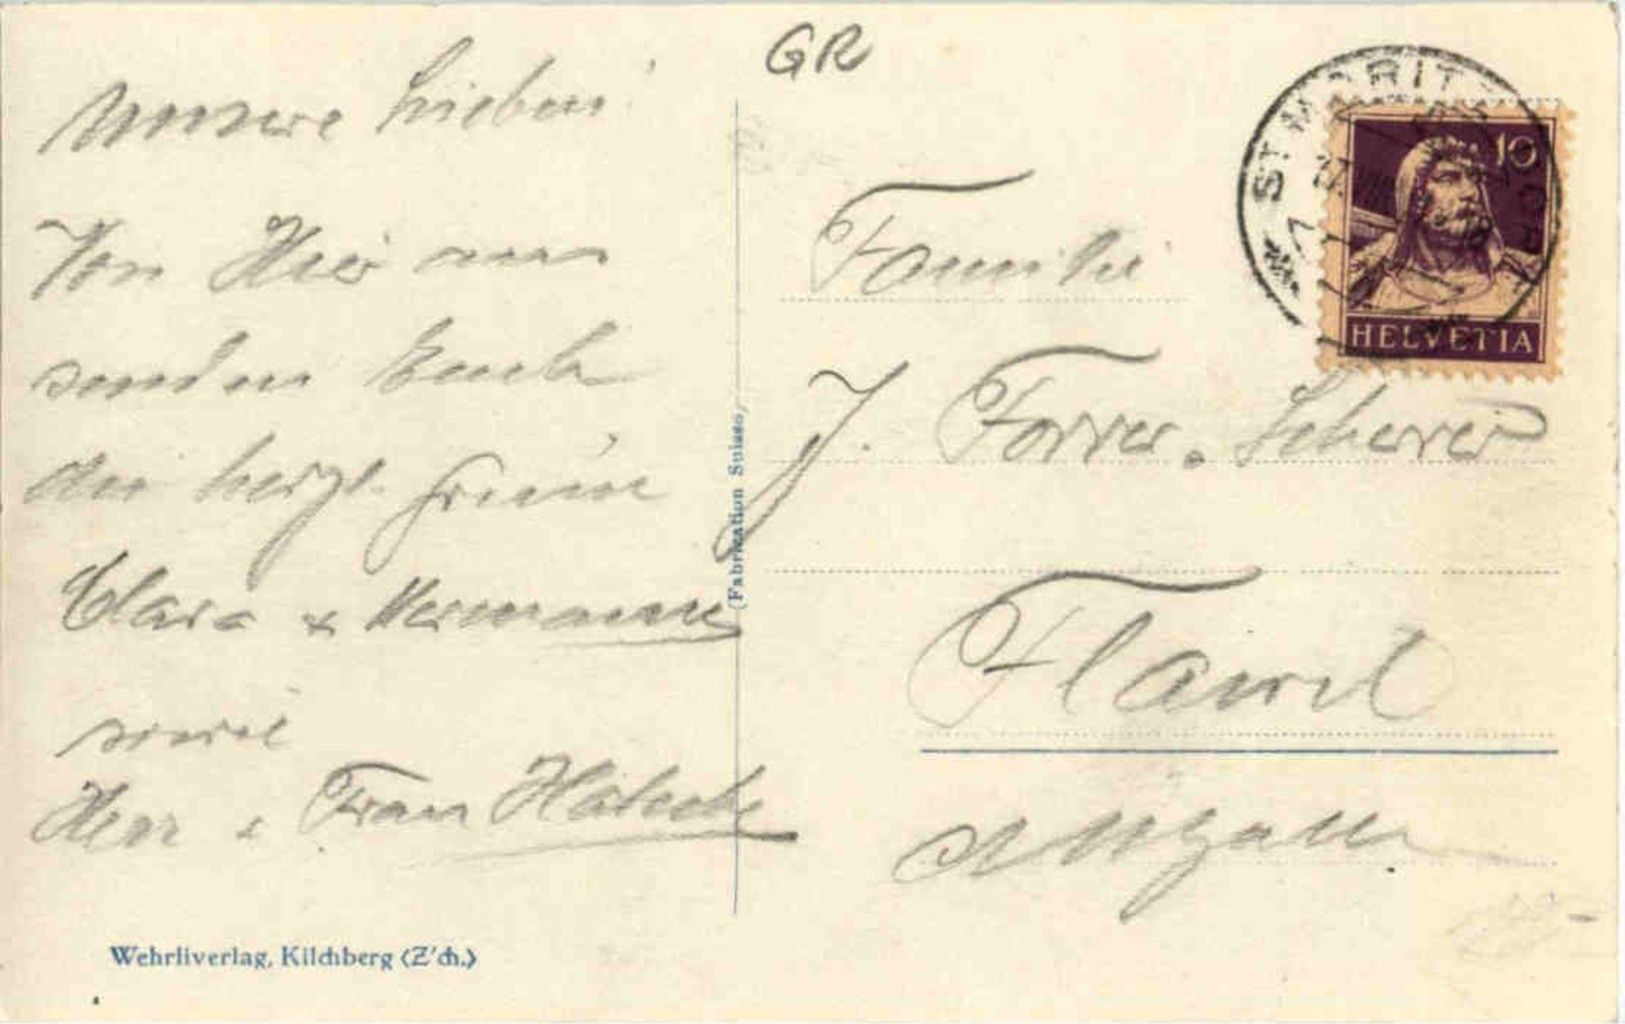 GR
Unsere Lieben!
Von Hier aus
senden Euch
die herzl. Grüsse
Clara & Hermann
sowie
Herr & Frau
Wehrliverlag, Kilchberg (Z'ch.)
(Fabrication Suisse)
ST. MORITZ
10
HELVETIA
Familie
J. Forrer-Scherrer
Flawil